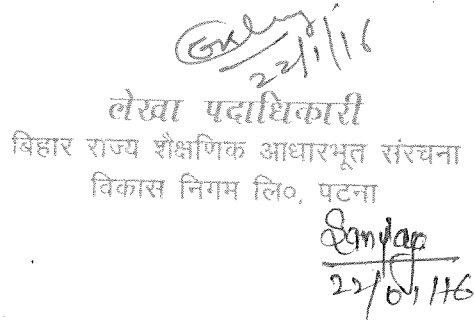 22/1/16
लेखा पदाधिकारी
बिहार राज्य शैक्षणिक आधारभूत संरचना
विकास निगम लि०, पटना
22/01/16